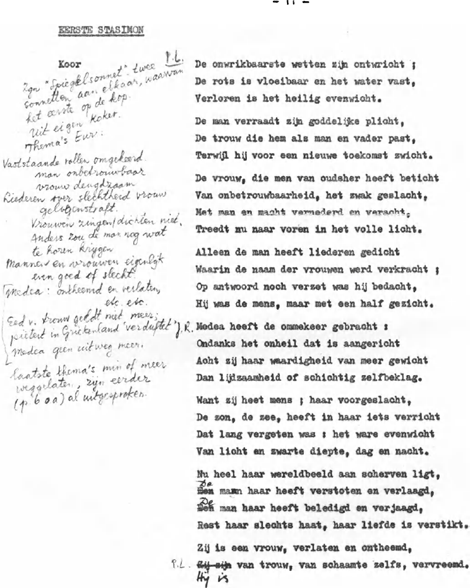 - 11 -
EERSTE STASIMON
Koor
P.L.
Zgn "Spiegelsonnet". twee
sonnetten aan elkaar, waarvan
het eerste op de kop.
Uit eigen koker.
Thema's Eur:
Vaststaande rollen omgekeerd.
man onbetrouwbaar
vrouw deugdzaam
Liederen over slechtheid vrouw
gelogenstraft.
Vrouwen zingen/dichten niet,
Anders zou de man nog wat
te horen krijgen
Mannen en vrouwen eigenlijk
even goed of slecht.
Medea: ontheemd en verlaten,
etc. etc.
Eed v. trouw geldt niet meer,
piëteit in Griekenland verduftet
Medea geen uitweg meer.
laatste thema's min of meer
weggelaten, zijn eerder
(p. 6 o a) al uitgesproken.
De onwrikbaarste wetten zijn ontwricht ;
De rots is vloeibaar en het water vast,
Verloren is het heilig evenwicht.
De man verraadt zijn goddelijke plicht,
De trouw die hem als man en vader past,
Terwijl hij voor een nieuwe toekomst zwicht.
De vrouw, die men van oudsher heeft beticht
Van onbetrouwbaarheid, het zwak geslacht,
Met man en macht vernederd en veracht,
Treedt nu naar voren in het volle licht.
Alleen de man heeft liederen gedicht
Waarin de naam der vrouwen werd verkracht ;
Op antwoord noch verzet was hij bedacht,
Hij was de mens, maar met een half gezicht.
J.R. Medea heeft de ommekeer gebracht :
Ondanks het onheil dat is aangericht
Acht zij haar waardigheid van meer gewicht
Dan lijdzaamheid of schichtig zelfbeklag.
Want zij heet mens ; haar voorgeslacht,
De zon, de zee, heeft in haar iets verricht
Dat lang vergeten was : het ware evenwicht
Van licht en zwarte diepte, dag en nacht.
Nu heel haar wereldbeeld aan scherven ligt,
De
man haar heeft verstoten en verlaagd,
De
man haar heeft beledigd en verjaagd,
Rest haar slechts haat, haar liefde is verstikt.
Zij is een vrouw, verlaten en ontheemd,
P.L. Zij zijn van trouw, van schaamte zelfs, vervreemd.
Hij is